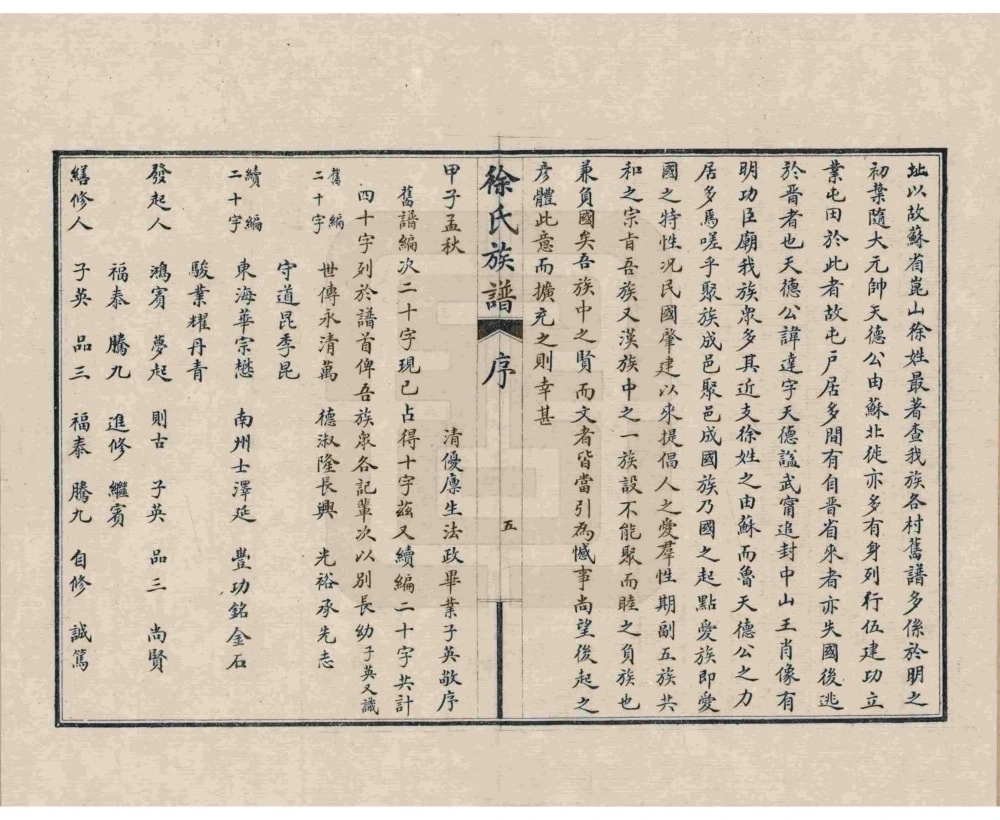 址以故蘇省崑山徐姓最著查我族各村舊譜多係於明之
初葉隨大元帥天德公由蘇北徙亦多有身列行伍建功立
業屯田於此者故屯戶居多間有自晉省來者亦失國後逃
於晉者也天德公諱達字天德謚武甯追封中山王肖像有
明功臣廟我族衆多其近支徐姓之由蘇而魯天德公之力
居多焉嗟乎聚族成邑聚邑成國族乃國之起點愛族即愛
國之特性况民國肇建以來提倡人之愛羣性期副五族共
和之宗旨吾族又漢族中之一族設不能聚而睦之負族也
兼負國矣吾族中之賢而文者皆當引為憾事尚望後起之
彥體此意而擴充之則幸甚
甲子孟秋 清優廪生法政畢業子英敬序
舊譜編次二十字現已占得十字茲又續編二十字共計
四十字列於譜首俾吾族衆各記輩次以別長幼子英又識
舊編二十字 世傳永清萬 德淑隆長興 光裕承先志
守道昆季昆
續編二十字 東海華宗懋 南州士澤延 豐功銘金石
駿業耀丹青
發起人 鴻賓 夢起 則古 子英 品三 尚賢
福泰 騰九 進修 繼賓
繕修人 子英 品三 福泰 騰九 自修 誠篤
徐氏族譜 序 五